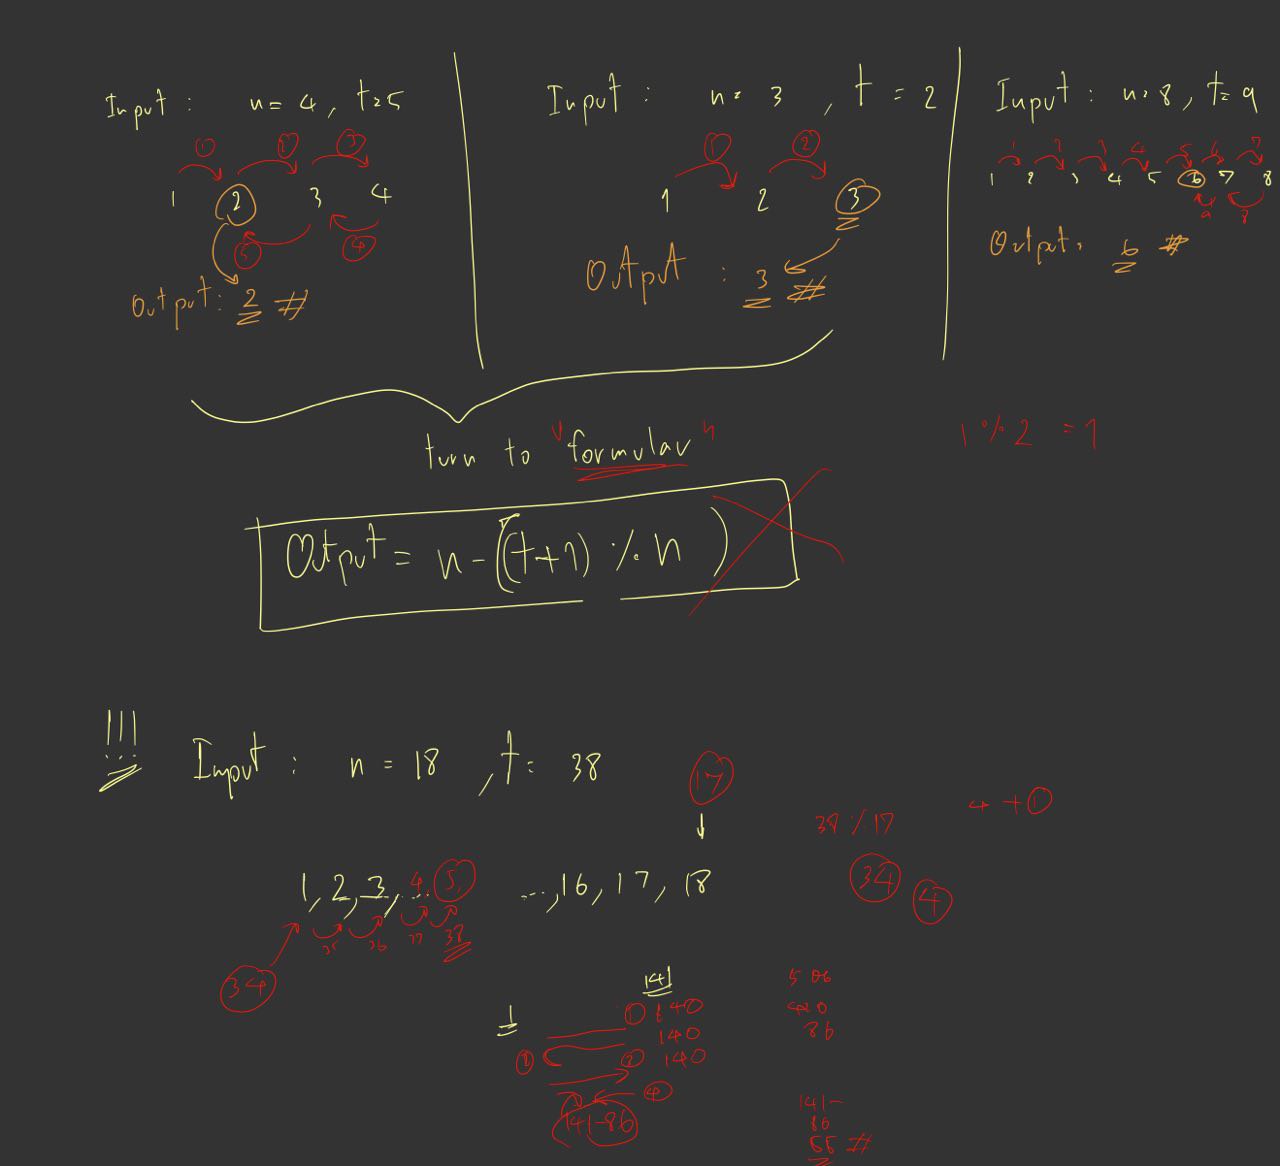 Input : n = 4 , t = 5
① ② ③
1 2 3 4
⑤ ④
Output : 2 #
Input : n = 3 , t = 2
① ②
1 2 3
Output : 3 #
Input : n = 8 , t = 9
1 2 3 4 5 6 7
1 2 3 4 5 6 7 8
9 8
Output : 6 #
1 % 2 = 1
turn to "formular"
Output = n - ((t+1) % n)
!!!
Input : n = 18 , t = 38
17
38 % 17
4 + ①
34
4
1, 2, 3, 4, 5, ..., 16, 17, 18
35 36 37 38
34
141
1
① 140
140
② 140
④
141-86
506
420
86
141-
86
55 #